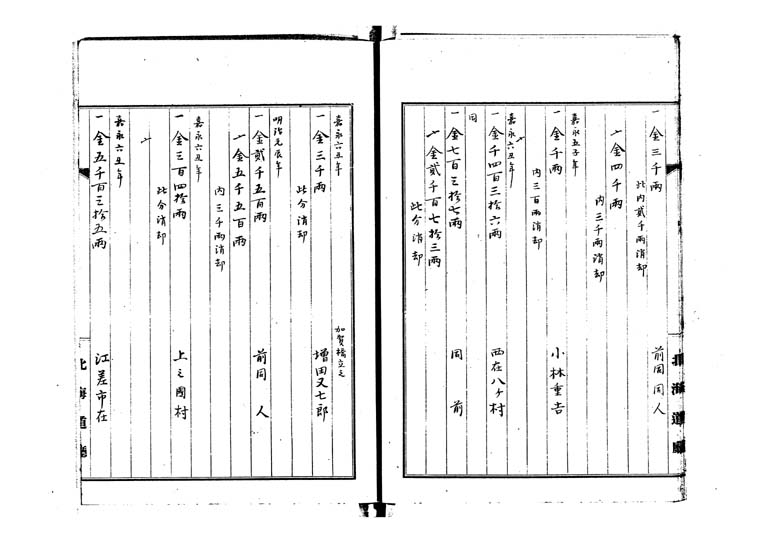 一金三千兩 前同同人
此内貳千兩消却
〆金四千兩
内三千兩消却
嘉永五子年
一金千兩 小林重吉
内三百兩消却
嘉永六丑年
一金千四百三拾六兩 西在八ケ村
同
一金七百三拾七兩 同前
〆金貳千百七拾三兩
此分消却
北海道廳
嘉永六丑年
一金三千兩 加賀橋立之 増田又七郎
此分消却
明治元辰年
一金貳千五百兩 前同人
〆金五千五百兩
内三千兩消却
嘉永六丑年
一金三百四拾兩 上之國村
此分消却
嘉永六丑年
一金五千百三拾五兩 江差市在
北海道廳